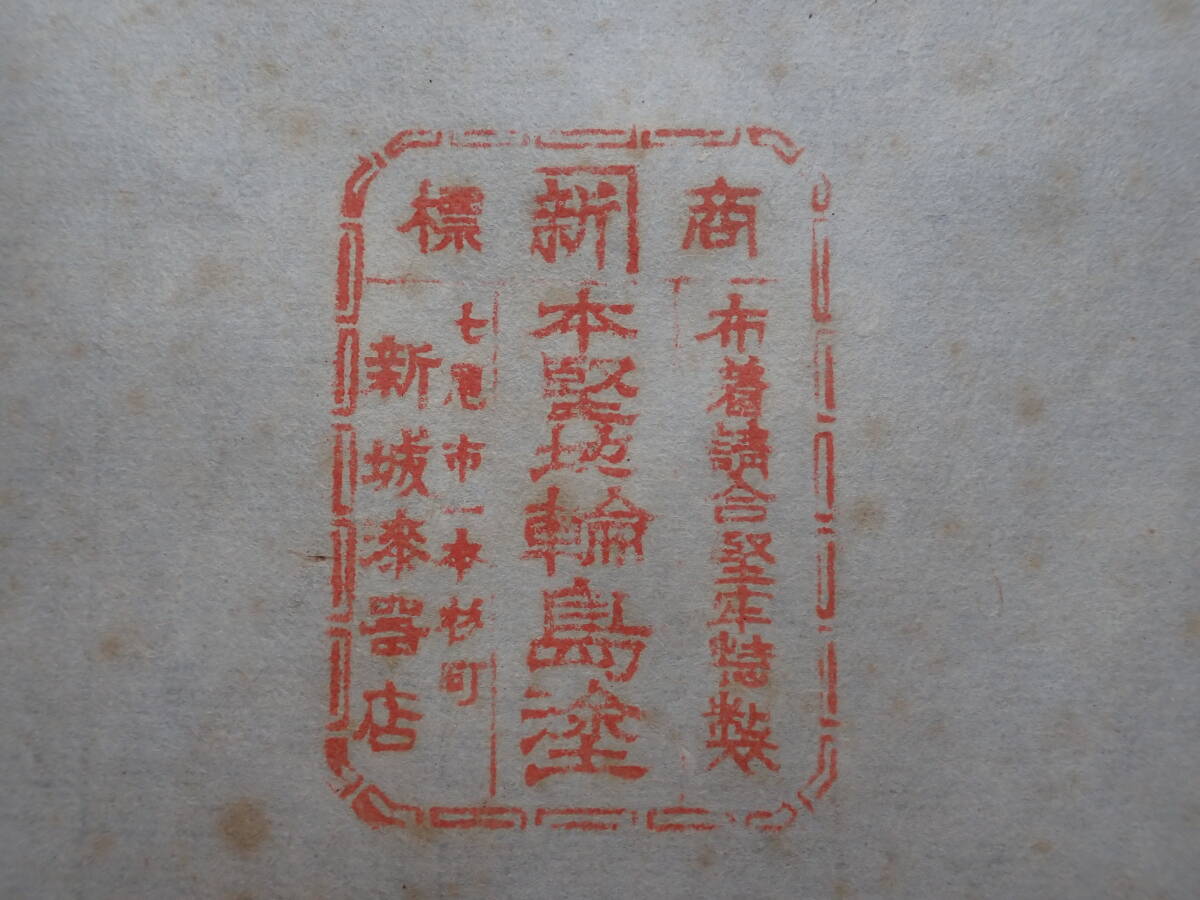 商標
新
布着請合堅牢特製
本堅地輪島塗
七尾市一本杉町
新城漆器店